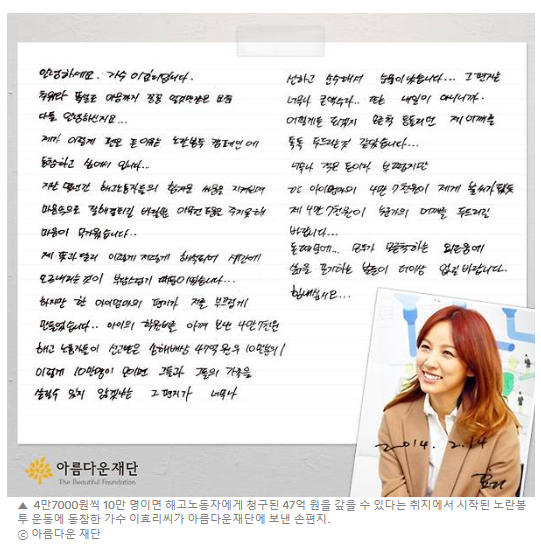 안녕하세요. 가수 이효리입니다.
추위와 폭설로 마음까지 꽁꽁 얼것만같은 요즘
다들 안녕하신지요...
제가 이렇게 펜을 든 이유는 노란봉투 캠페인에
동참하고 싶어서 입니다...
지난 몇년간 해고노동자들의 힘겨운 싸움을 지켜보며
마음속으로 잘해결되길 바랄뿐 아무것도 못해
마음이 무거웠습니다..
제 뜻과 달리 이렇게 저렇게 해석되어 세간에
오르내리는것이 부담스럽기 때문이었습니다...
하지만 한 아이엄마의 편지가 저를 부끄럽게
만들었습니다.. 아이의 학원비를 아껴 보낸 4만7천원
해고 노동자들이 선고받은 손해배상 47억원의 10만분의1
이렇게 10만명이 모이면 그들과 그들의 가족을
살릴수 있지 않겠냐는 그 편지가 너무나
선하고 순수해서 눈물이 났습니다... 그 편지는
너무나 큰액수다.. 또는 내일이 아니니까..
어떻게든 되겠지 모른척 등돌리던 제 어깨를
톡톡 두드리는것 같았습니다...
너무나 적은 돈이라 부끄럽지만
한 아이엄마의 4만 7천원이 제게 불씨가 됐듯
제 4만 7천원이 누군가의 어깨를 두드리길
바랍니다...
돈 때문에... 모두가 모른척하는 외로움에
삶을 포기하는 분들이 더이상 없길 바랍니다.
힘내십시오...
2014. 2.14
효리
아름다운재단
The Beautiful Foundation
▲ 4만7000원씩 10만 명이면 해고노동자에게 청구된 47억 원을 갚을 수 있다는 취지에서 시작된 노란봉
투 운동에 동참한 가수 이효리씨가 아름다운재단에 보낸 손편지.
ⓒ 아름다운 재단